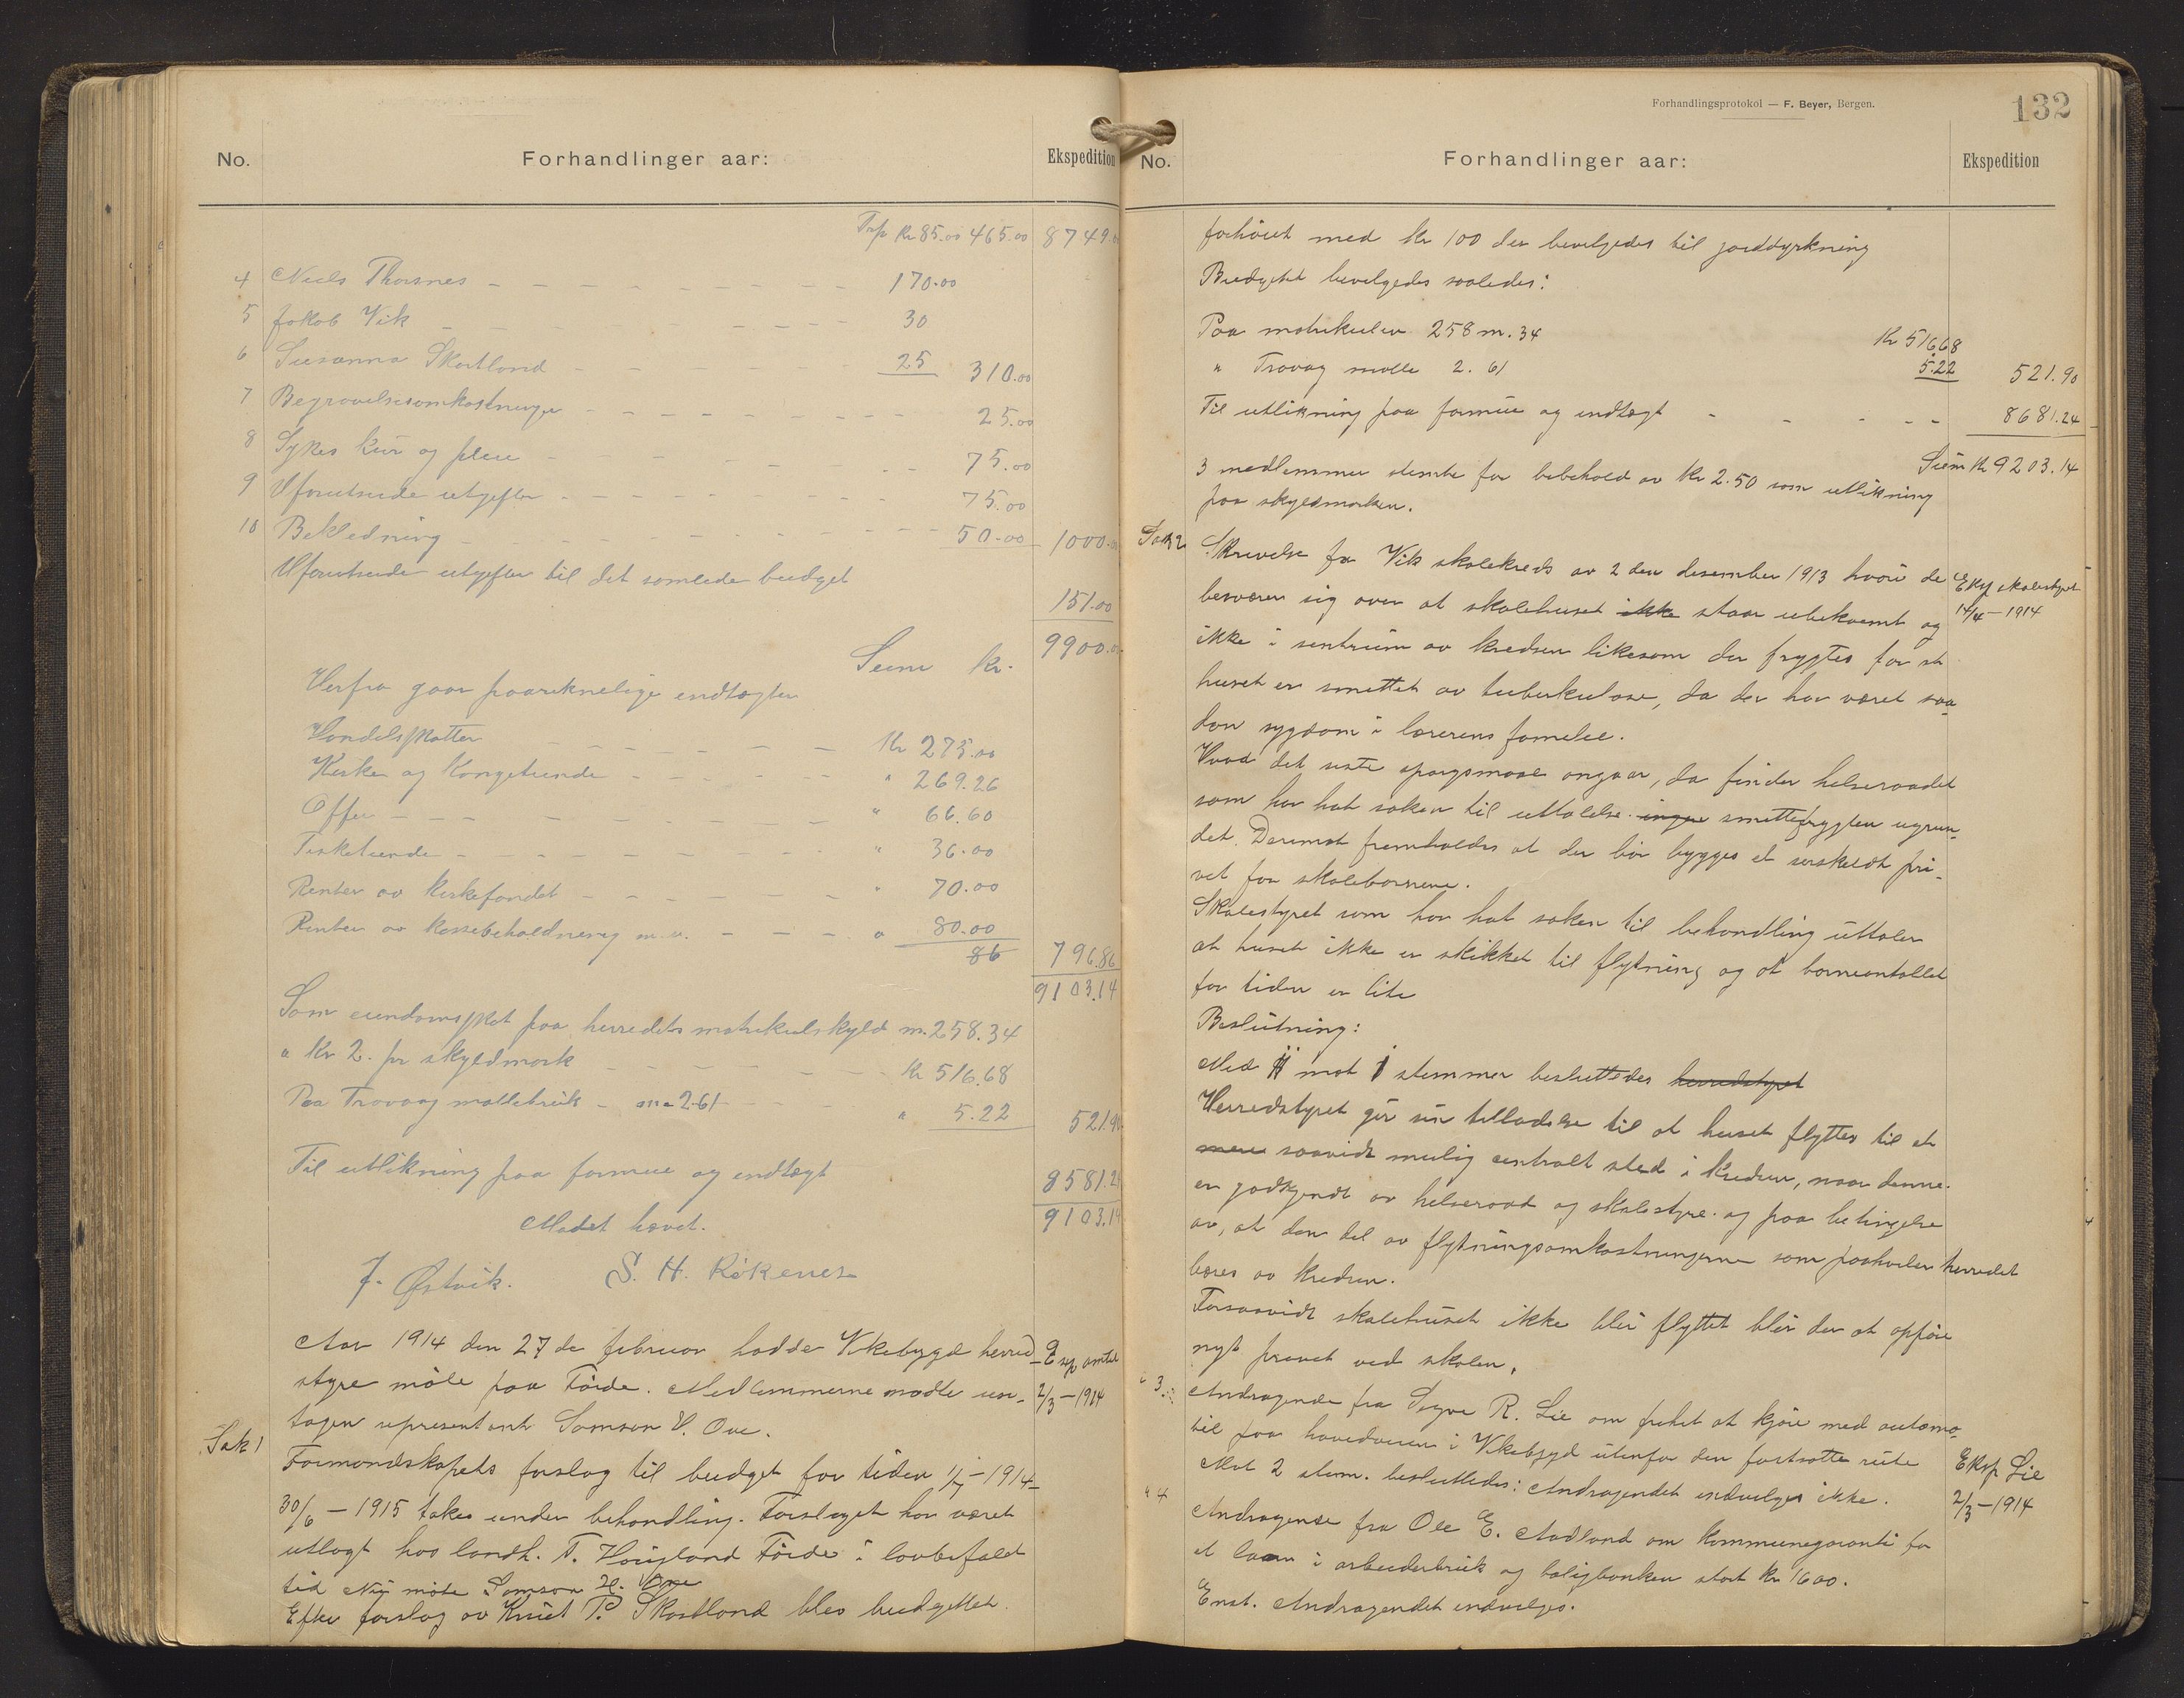 No.
Forhandlinger aar:
Ekspedition
Trsp Kr 85.00 465.00 8749.00
4 Niels Thorsnes - - - 170.00
5 Jakob Vik - - - 30
6 Susanna Skartland - - - 25 310.00
7 Begravelsesomkostninger - - - 25.00
8 Sykes kur og pleie - - - 75.00
9 Uforutsede utgifter - - - 75.00
10 Beklædning - - - 50.00 1000.00
Uforutsede utgifter til det samlede budget
151.00
Sum kr. 9900.00
Herfra gaar paareknelige indtægter
Handelsskatter - - - Kr 275.00
Kirke og Kongetiende - - - " 269.26
Offer - - - " 66.60
Fisketiende - - - " 36.00
Renter av kirkefondet - - - " 70.00
Renter av kassebeholdning m.v. - - - " 80.00
86 796.86
9103.14
Som eiendomsskat paa herredets matrikulskyld m. 258.34
a Kr 2. pr skyldmark - - - Kr 516.68
Paa Trovaag møllebruk - m 2.61 - - " 5.22 521.90
Til utlikning paa formue og indtægt 8581.24
9103.14
Møtet hævet.
J. Østvik. S. H. Røkenes
Aar 1914 den 27de februar hadde Vikebygd herred-
styre møte paa Førde. Medlemmerne møtte und-
tagen representant Samson H. Ove.
Eksp amtet
2/3-1914
Sak 1
Formandskapets forslag til budget for tiden 1/7-1914-
30/6-1915 tokes under behandling. Forslaget har været
utlagt hos landh. T. Haugland Førde i lovbefalet
tid Nu møtte Samson H. Ove
Efter forslag av Knut P. Skartland blev budgettet
Forhandlingsprotokol — F. Beyer, Bergen.
132
No.
Forhandlinger aar:
Ekspedition
forhøiet med kr 100 der bevilgedes til jorddyrkning
Budgettet bevilgedes saaledes:
Paa matrikulen 258 m. 34 Kr 516.68
" Trovag mølle 2.61 5.22 521.90
Til utlikning paa formue og indtægt - - - 8681.24
Sum Kr 9203.14
3 medlemmer stemte for bibehold av kr 2.50 som utlikning
paa skyldmarken.
Sak 2
Skrivelse fra Vik skolekreds av 2den desember 1913 hvori de
besværer sig over at skolehuset ikke staar ubekvemt og
ikke i sentrum av kredsen likesom der frygtes for at
huset er smittet av tuberkulose, da der har været saa-
dan sygdom i lærerens familie.
Eksp skolestyret
14/4-1914
Hvad det siste spørgsmaal angaar, da finder helseraadet
som har hat saken til uttalelse ingen smittefrygten ugrun-
det. Derimot fremholdes at der bør bygges et særskildt pri-
vet for skolebørnene.
Skolestyret som har hat saken til behandling uttaler
at huset ikke er skikket til flytning og at barneantallet
for tiden er lite
Beslutning:
Med 11 mot 1 stemmer besluttedes herredstyret
Herredstyret gir sin tilladelse til at huset flyttes til et
mere saavidt mulig centralt sted i kredsen, naar denne
er godkjendt av helseraad og skolestyre og paa betingelse
av, at den del av flytningsomkostningerne som paahviler herredet
bæres av kredsen.
Forsaavidt skolehuset ikke blir flyttet blir der at opføre
nyt privet ved skolen.
" 3.
Andragende fra Sigve R. Lie om frihet at kjøre med automo-
bil paa hovedveien i Vikebygd utenfor den fastsatte rute
Mot 2 stem. besluttedes: Andragendet indvilges ikke.
Eksp Lie
2/3-1914
" 4
Andragende fra Ole E. Aadland om kommunegaranti for
et laan i arbeiderbruk og boligbanken stort kr 1600.
Enst. Andragendet indvilges.